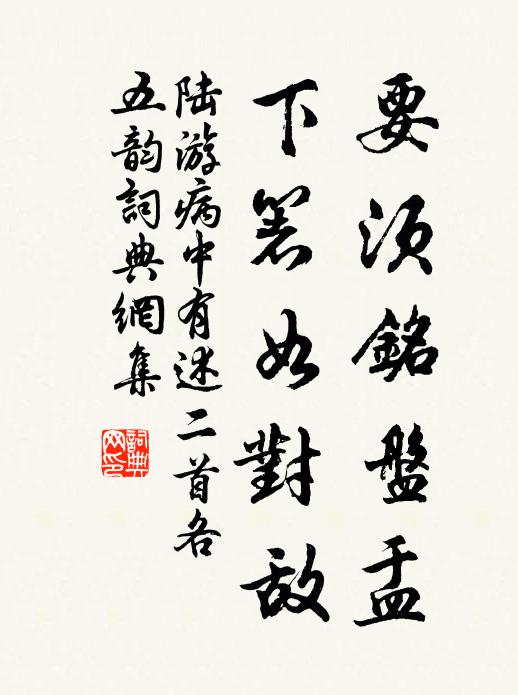 要須銘盤盂
下箸如對敵
陆游病中有述二首各
五韵詞典網集
詞典
网印